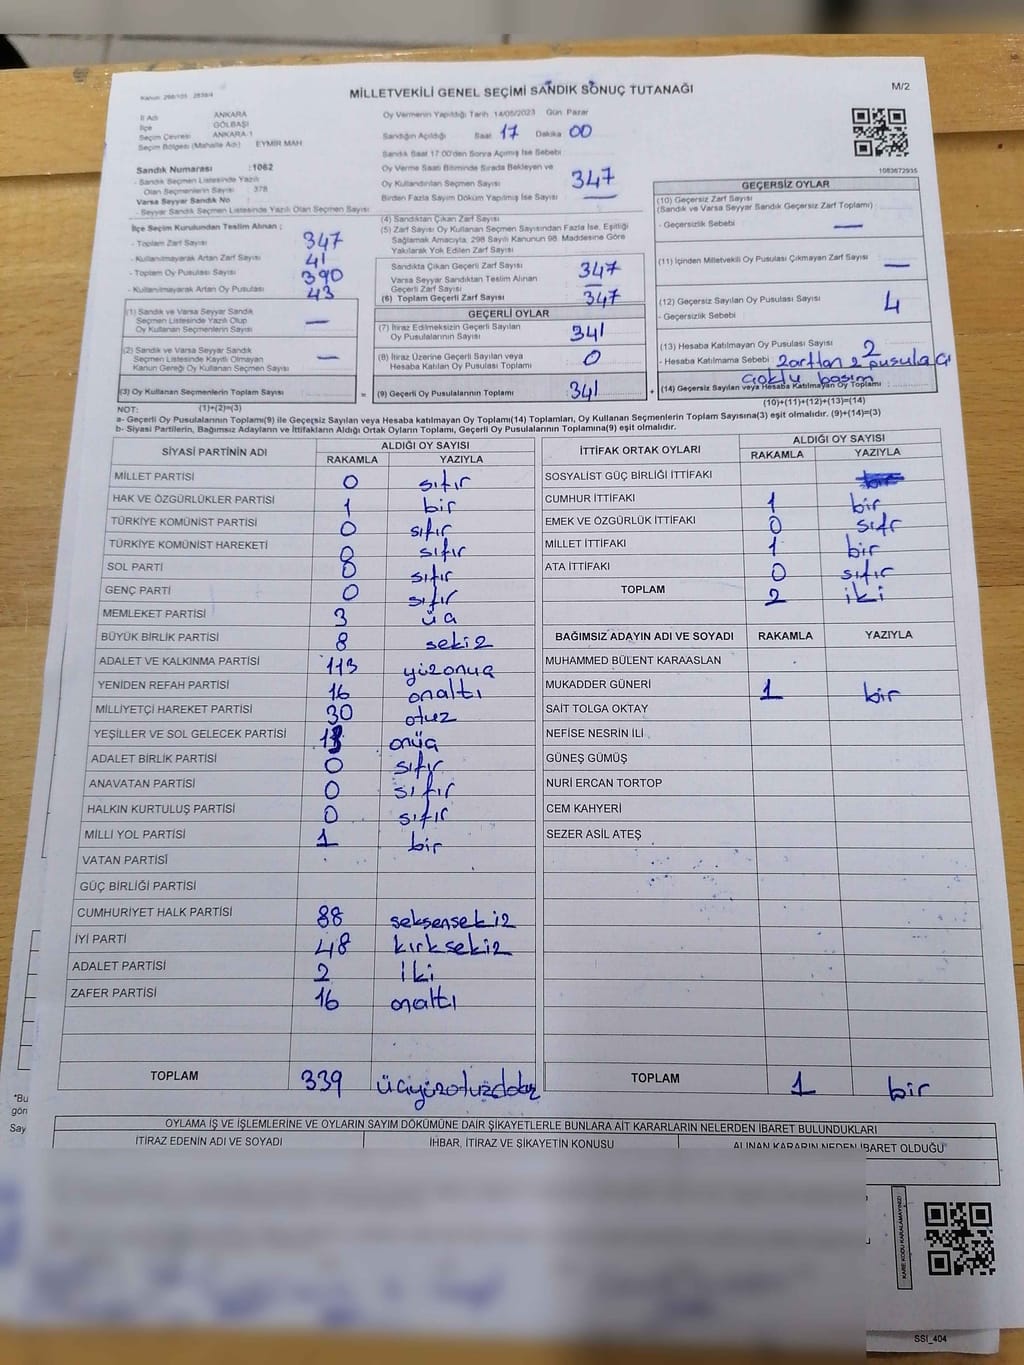 Kanun: 298/105 2839/4
MİLLETVEKİLİ GENEL SEÇİMİ SANDIK SONUÇ TUTANAĞI
M/2
İl Adı ANKARA
İlçe GÖLBAŞI
Seçim Çevresi ANKARA-1
Seçim Bölgesi (Mahalle Adı) EYMİR MAH
Sandık Numarası :1062
- Sandık Seçmen Listesinde Yazılı
Olan Seçmenlerin Sayısı 378
Varsa Seyyar Sandık No
- Seyyar Sandık Seçmen Listesinde Yazılı Olan Seçmen Sayısı
İlçe Seçim Kurulundan Teslim Alınan ;
- Toplam Zarf Sayısı 347
- Kullanılmayarak Artan Zarf Sayısı 41
- Toplam Oy Pusulası Sayısı 390
- Kullanılmayarak Artan Oy Pusulası 43
(1) Sandık ve Varsa Seyyar Sandık
Seçmen Listesinde Yazılı Olup
Oy Kullanan Seçmenlerin Sayısı —
(2) Sandık ve Varsa Seyyar Sandık
Seçmen Listesinde Kayıtlı Olmayan
Kanun Gereği Oy Kullanan Seçmen Sayısı —
(3) Oy Kullanan Seçmenlerin Toplam Sayısı =
Oy Vermenin Yapıldığı Tarih 14/05/2023 Gün Pazar
Sandığın Açıldığı Saat 17 Dakika 00
Sandık Saat 17:00'den Sonra Açılmış İse Sebebi
Oy Verme Saati Bitiminde Sırada Bekleyen ve
Oy Kullandırılan Seçmen Sayısı 347
Birden Fazla Sayım Döküm Yapılmış İse Sayısı —
(4) Sandıktan Çıkan Zarf Sayısı
(5) Zarf Sayısı Oy Kullanan Seçmen Sayısından Fazla İse, Eşitliği
Sağlamak Amacıyla, 298 Sayılı Kanunun 98. Maddesine Göre
Yakılarak Yok Edilen Zarf Sayısı
Sandıkta Çıkan Geçerli Zarf Sayısı 347
Varsa Seyyar Sandıktan Teslim Alınan
Geçerli Zarf Sayısı —
(6) Toplam Geçerli Zarf Sayısı 347
GEÇERLİ OYLAR
(7) İtiraz Edilmeksizin Geçerli Sayılan
Oy Pusulalarının Sayısı 341
(8) İtiraz Üzerine Geçerli Sayılan veya
Hesaba Katılan Oy Pusulası Toplamı 0
(9) Geçerli Oy Pusulalarının Toplamı 341 +
1083672935
GEÇERSİZ OYLAR
(10) Geçersiz Zarf Sayısı
(Sandık ve Varsa Seyyar Sandık Geçersiz Zarf Toplamı)
- Geçersizlik Sebebi —
(11) İçinden Milletvekili Oy Pusulası Çıkmayan Zarf Sayısı —
(12) Geçersiz Sayılan Oy Pusulası Sayısı 4
- Geçersizlik Sebebi
(13) Hesaba Katılmayan Oy Pusulası Sayısı 2
- Hesaba Katılmama Sebebi zarftan 2 pusula çı
çoklu basım
(14) Geçersiz Sayılan veya Hesaba Katılmayan Oy Toplamı
(10)+(11)+(12)+(13)=(14)
NOT: (1)+(2)=(3)
a- Geçerli Oy Pusulalarının Toplamı(9) ile Geçersiz Sayılan veya Hesaba katılmayan Oy Pusulası Toplamı(14) Toplamları, Oy Kullanan Seçmenlerin Toplam Sayısına(3) eşit olmalıdır. (9)+(14)=(3)
b- Siyasi Partilerin, Bağımsız Adayların ve İttifakların Aldığı Ortak Oyların Toplamı, Geçerli Oy Pusulalarının Toplamına(9) eşit olmalıdır.
SİYASİ PARTİNİN ADI ALDIĞI OY SAYISI
RAKAMLA YAZIYLA
MİLLET PARTİSİ 0 sıfır
HAK VE ÖZGÜRLÜKLER PARTİSİ 1 bir
TÜRKİYE KOMÜNİST PARTİSİ 0 sıfır
TÜRKİYE KOMÜNİST HAREKETİ 0 sıfır
SOL PARTİ 0 sıfır
GENÇ PARTİ 0 sıfır
MEMLEKET PARTİSİ 3 üç
BÜYÜK BİRLİK PARTİSİ 8 sekiz
ADALET VE KALKINMA PARTİSİ 113 yüzonüç
YENİDEN REFAH PARTİSİ 16 onaltı
MİLLİYETÇİ HAREKET PARTİSİ 30 otuz
YEŞİLLER VE SOL GELECEK PARTİSİ 13 onüç
ADALET BİRLİK PARTİSİ 0 sıfır
ANAVATAN PARTİSİ 0 sıfır
HALKIN KURTULUŞ PARTİSİ 0 sıfır
MİLLİ YOL PARTİSİ 1 bir
VATAN PARTİSİ
GÜÇ BİRLİĞİ PARTİSİ
CUMHURİYET HALK PARTİSİ 88 seksensekiz
İYİ PARTİ 48 kırksekiz
ADALET PARTİSİ 2 iki
ZAFER PARTİSİ 16 onaltı
TOPLAM 339 üçyüzotuzdokuz
İTTİFAK ORTAK OYLARI ALDIĞI OY SAYISI
RAKAMLA YAZIYLA
SOSYALİST GÜÇ BİRLİĞİ İTTİFAKI
CUMHUR İTTİFAKI 1 bir
EMEK VE ÖZGÜRLÜK İTTİFAKI 0 sıfr
MİLLET İTTİFAKI 1 bir
ATA İTTİFAKI 0 sıfır
TOPLAM 2 iki
BAĞIMSIZ ADAYIN ADI VE SOYADI RAKAMLA YAZIYLA
MUHAMMED BÜLENT KARAASLAN
MUKADDER GÜNERİ 1 bir
SAİT TOLGA OKTAY
NEFİSE NESRİN İLİ
GÜNEŞ GÜMÜŞ
NURİ ERCAN TORTOP
CEM KAHYERİ
SEZER ASİL ATEŞ
TOPLAM 1 bir
*Bu
gör
Say
OYLAMA İŞ VE İŞLEMLERİNE VE OYLARIN SAYIM DÖKÜMÜNE DAİR ŞİKAYETLERLE BUNLARA AİT KARARLARIN NELERDEN İBARET BULUNDUKLARI
İTİRAZ EDENİN ADI VE SOYADI İHBAR, İTİRAZ VE ŞİKAYETİN KONUSU ALINAN KARARIN NEDEN İBARET OLDUĞU
KARE KODU KARALAMAYINIZ!
SSİ_404